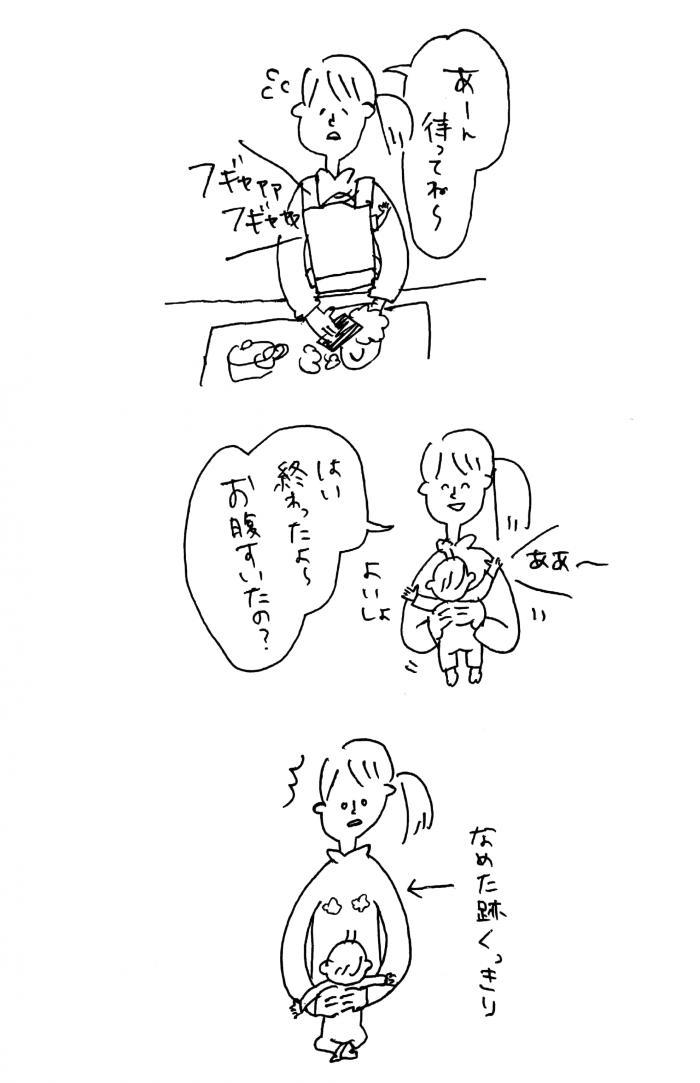 あーん
待ってね〜
フギャァァ
フギャァァ
はい
終わったよ〜
お腹すいたの？
よいしょ
ああ〜
なめた跡くっきり